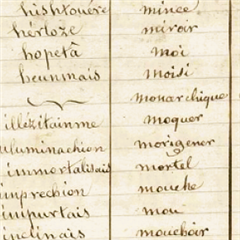 hishtouére mincee
hérloze miroir
hopetâ moi
heunmais moisi
monarchique
illézitainme moquer
uluminachion morigener
immortalisais mortel
imprechion mouche
impurtais mou
inclinais mouchoir